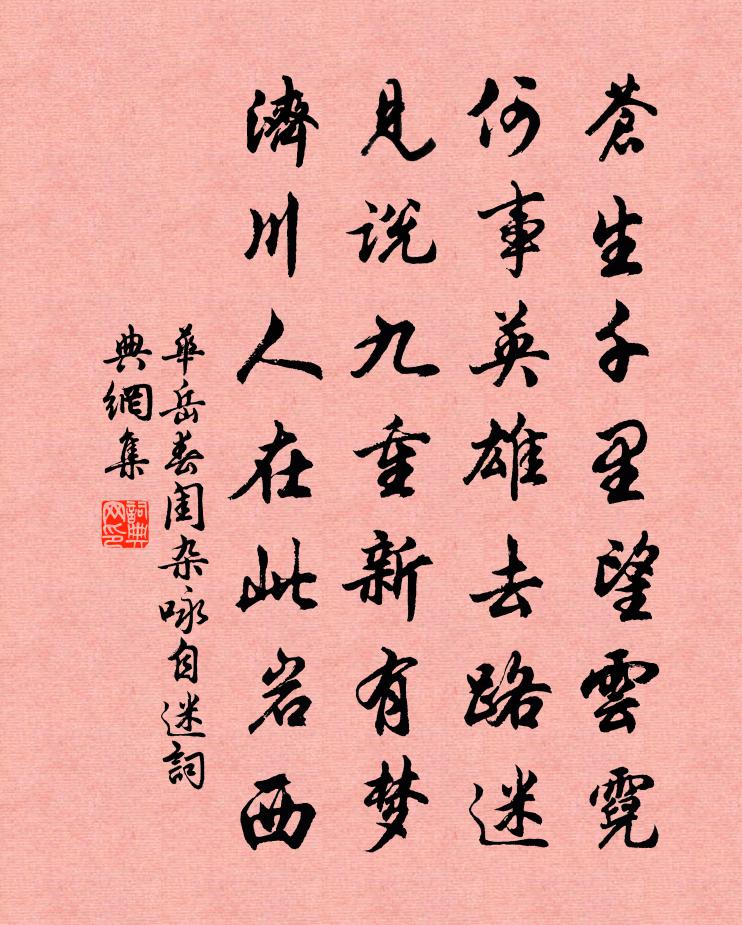 蒼生千里望雲霓
何事英雄去路迷
見説九重新有梦
濟川人在此岩西
華岳春闺杂咏自迷詞
典網集
詞典网印